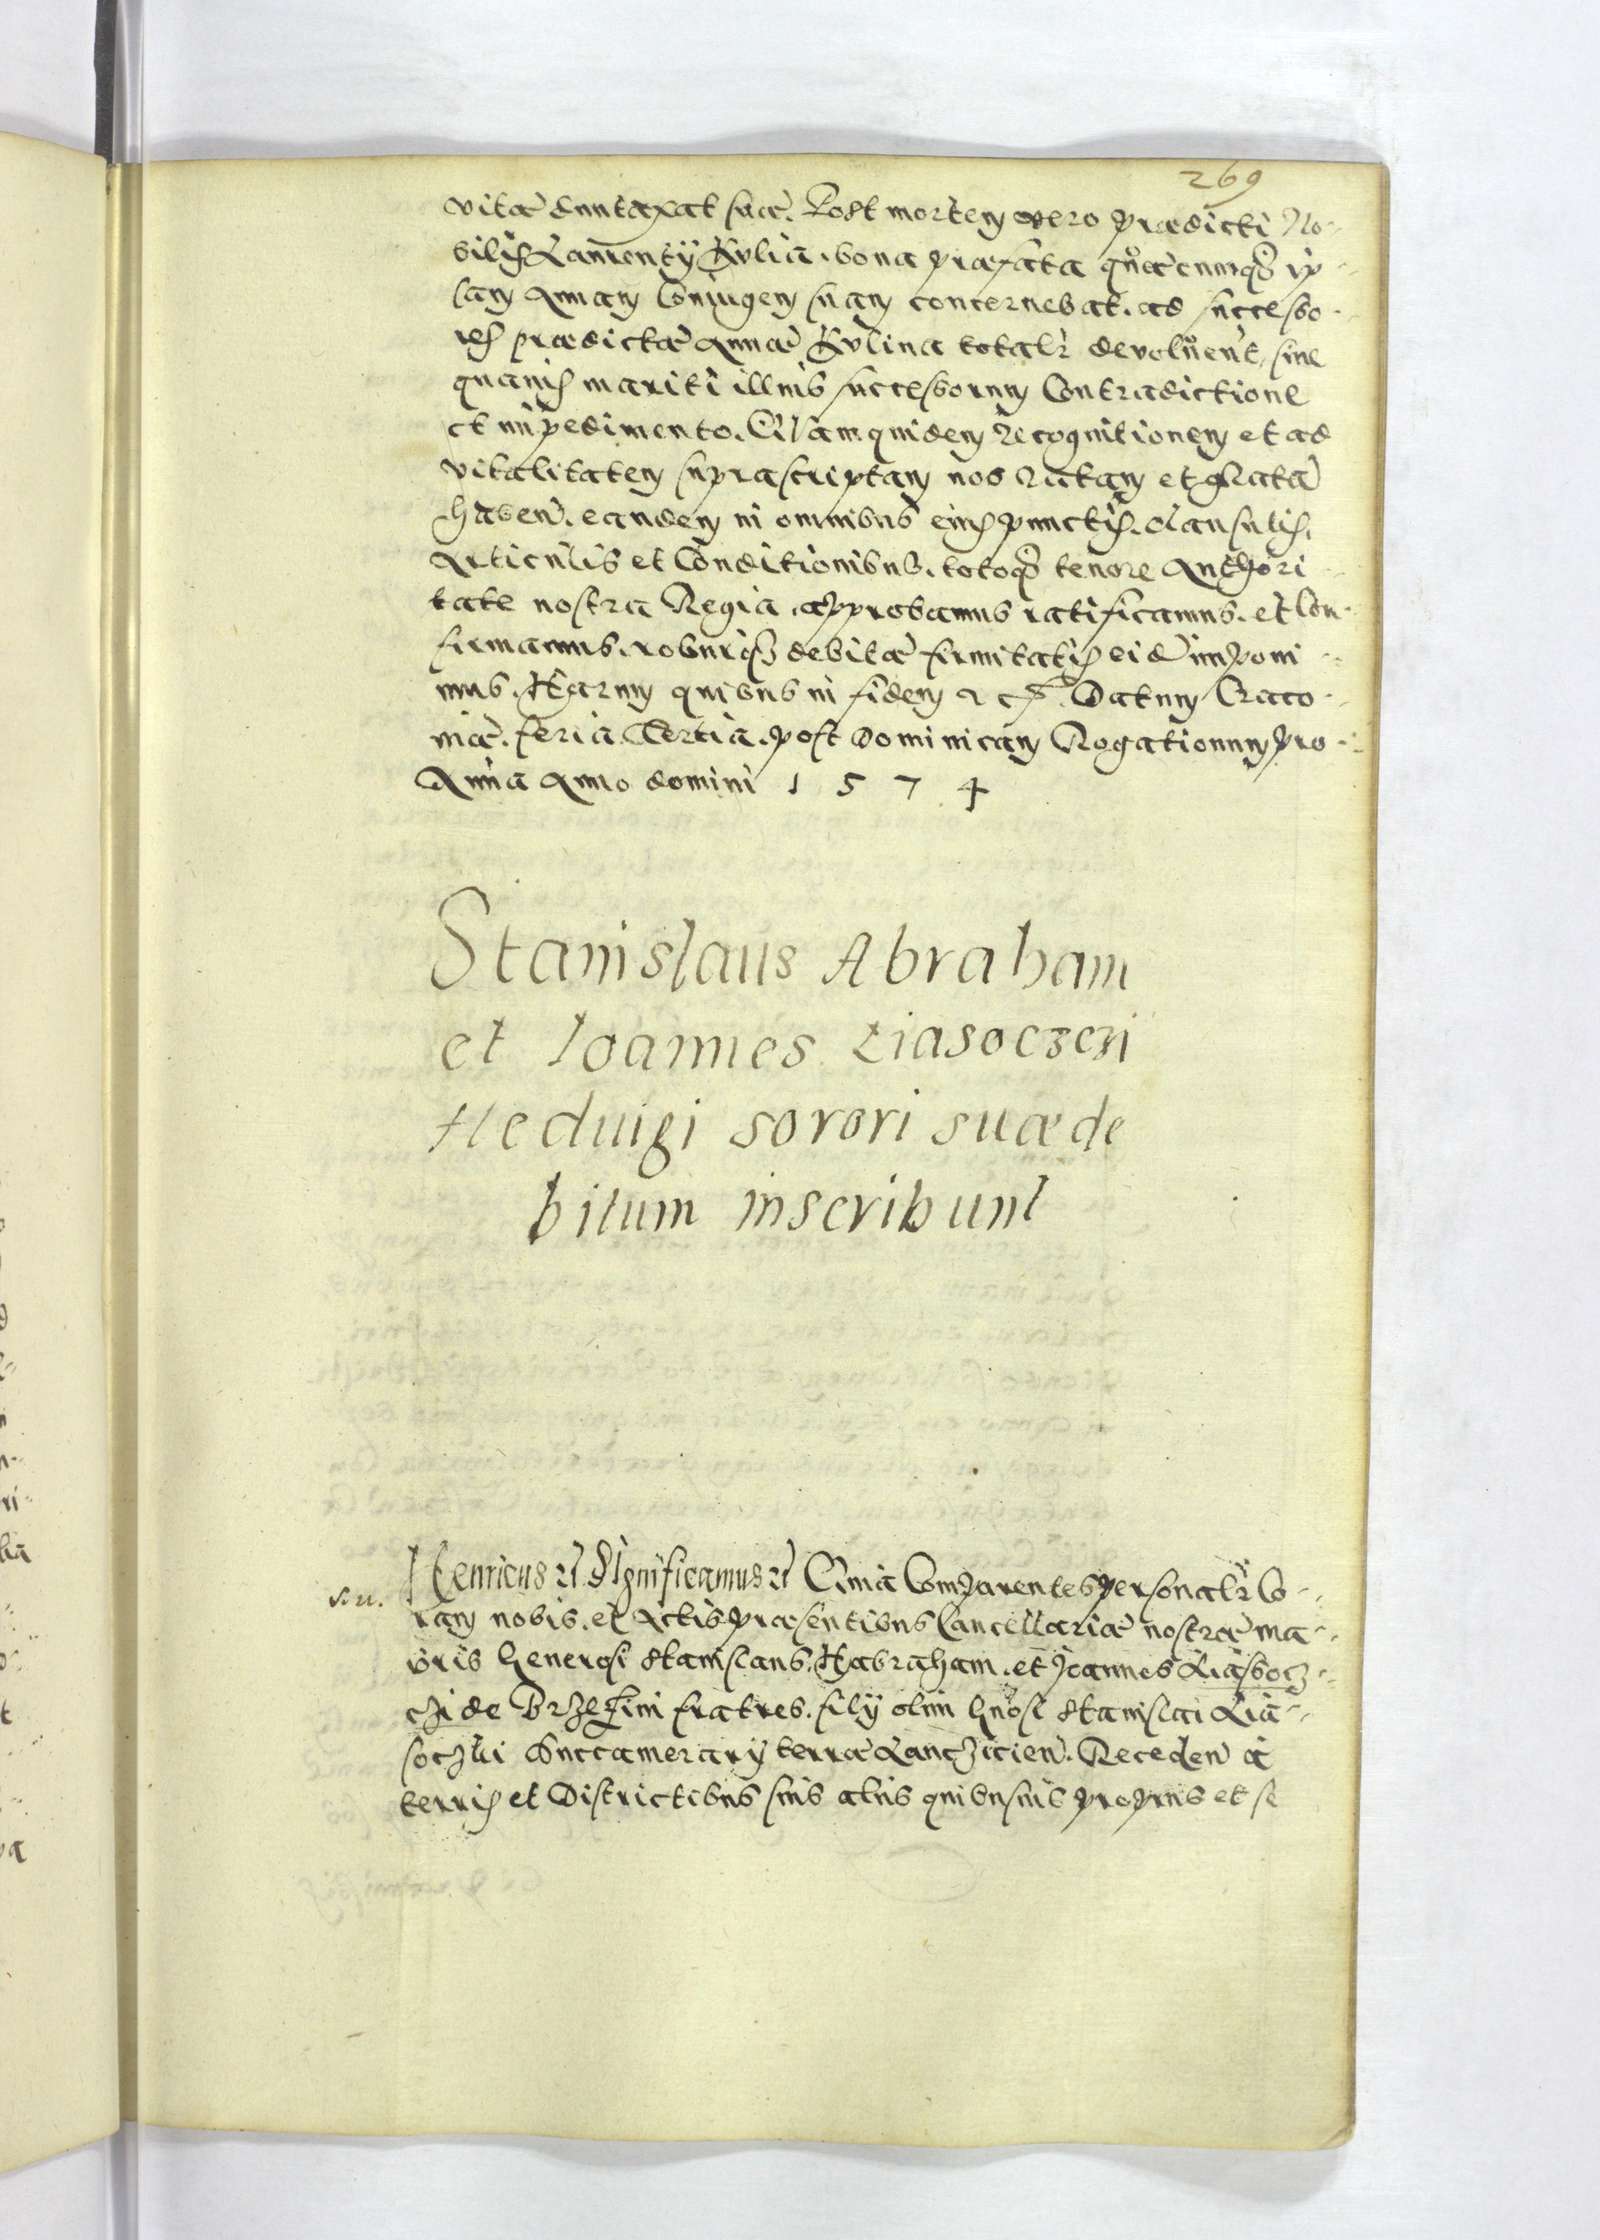 269
vitæ duntaxat suæ. Post mortem vero prædicti No-
bilis Laurentÿ Kulia. bona præfata quæcunq3 ip-
sam Annam Coniugem suam concernebat. ad successo-
res prædictæ Annæ Kulina totalr devoluent, sine
quavis mariti illius successorum Contradictione
et impedimento. Quam quidem Recognitionem et ad
vitalitatem suprascriptam nos Ratam et Gratã
haben. eandem in omnibus eius punctis. clausulis.
Articulis et Conditionibus. totoq3 tenore Authori-
tate nostra Regia. approbamus ratificamus. et Con-
firmamus. roburq3 debitæ firmitatis eid imponi-
mus. Harum quibus in fidem &c. Datum Craco-
viæ. feria Tertia. post Dominicam Rogationum pro-
xima Anno domini 1574
Stanislaus Abraham
et Joannes Liasoczcẏ
Heduigi sorori suæ de
bitum inscribunt
Henricus &c Significamus &c Quia Comparentes personalr Co-
ram nobis. et Actis præsentibus Cancellariæ nostræ ma-
ioris Generosi Stanislaus. Habraham. et Joannes Liassocz-
czi de Brzezini fratres. filÿ olim Gnosi Stanislai Lia-
soczki Succamerarÿ terræ Lanczicien. Receden a
terris et Districtibus suis aliis quibusuis propriis et se